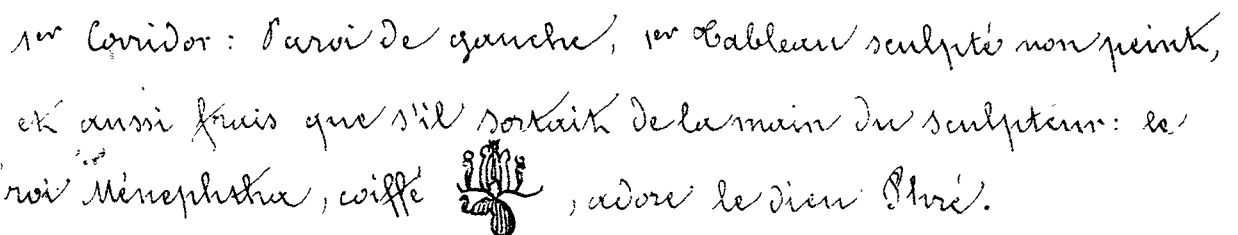 1er Corridor: Paroi de gauche, 1er Tableau sculpté non peint,
et aussi frais que s'il sortait de la main du sculpteur: le
roi Ménephtha, coiffé , adore le dieu Phré.